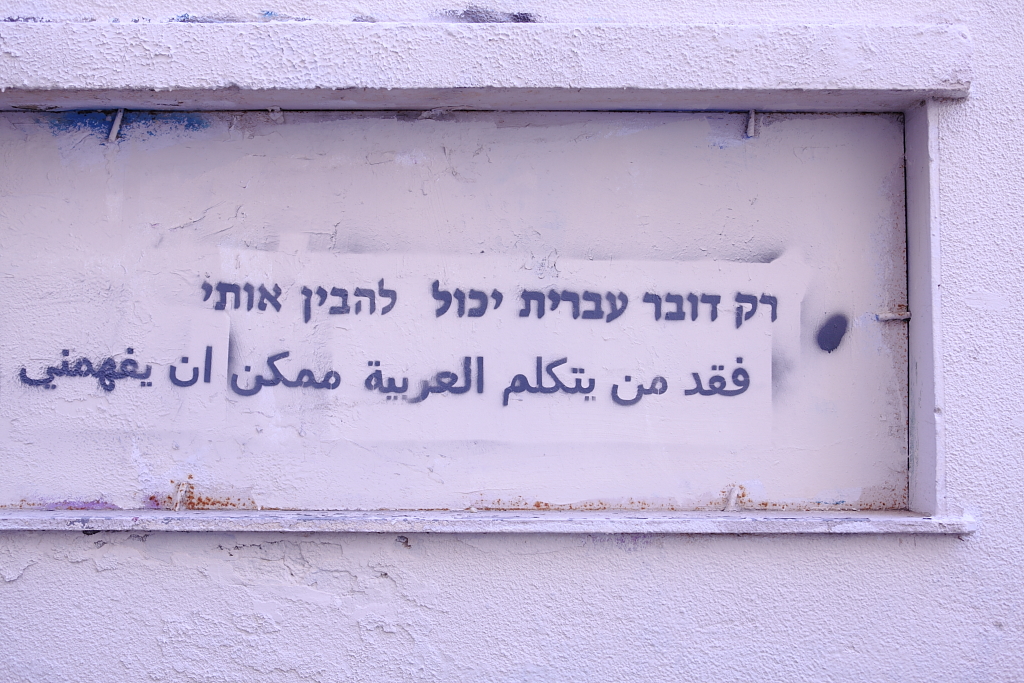 רק דובר עברית יכול להבין אותי
فقد من يتكلم العربية ممكن ان يفهمني